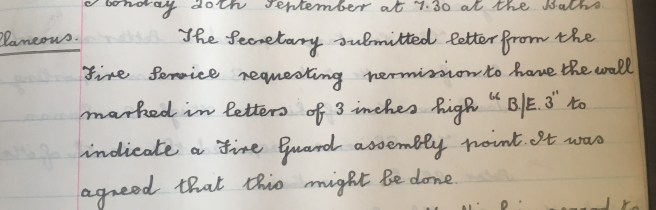 Monday 20th September at 7.30 at the Baths.
llaneous. The Secretary submitted letter from the
Fire Service requesting permission to have the wall
marked in letters of 3 inches high "B/E. 3" to
indicate a Fire Guard assembly point. It was
agreed that this might be done.